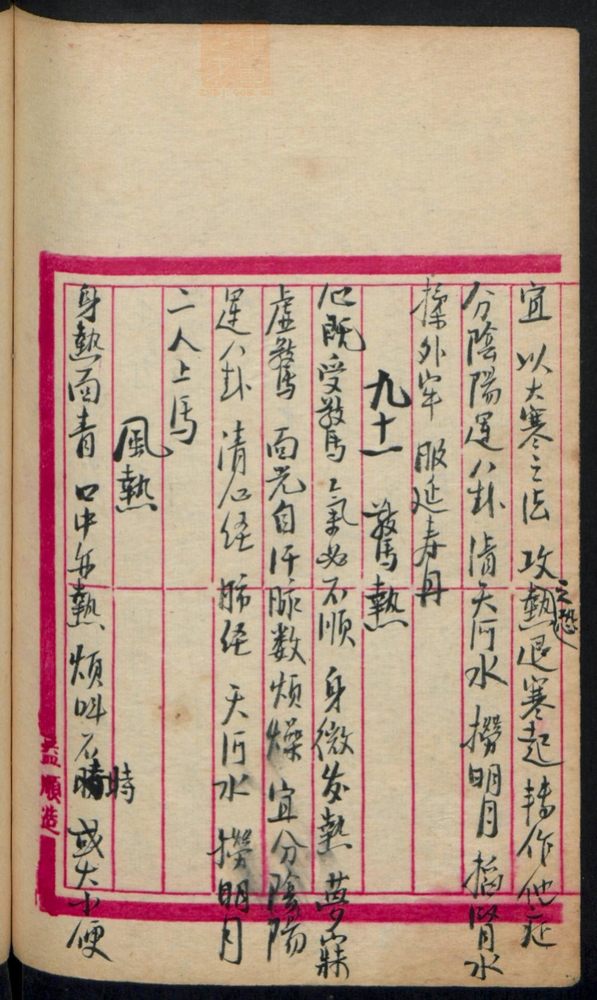 宜以大寒之法攻之恐熱退寒起轉作他症
分陰陽運八卦清天河水撈明月掐腎水
揉外牢服延寿丹
九十一 驚熱
心既受驚氣必不順身微发熱夢寐
虛驚面光自汗脉数烦燥宜分陰陽
運八卦清心经肺经天河水撈明月
二人上馬
風熱
身熱面青口中亦熱烦呌不時或大小便
順造